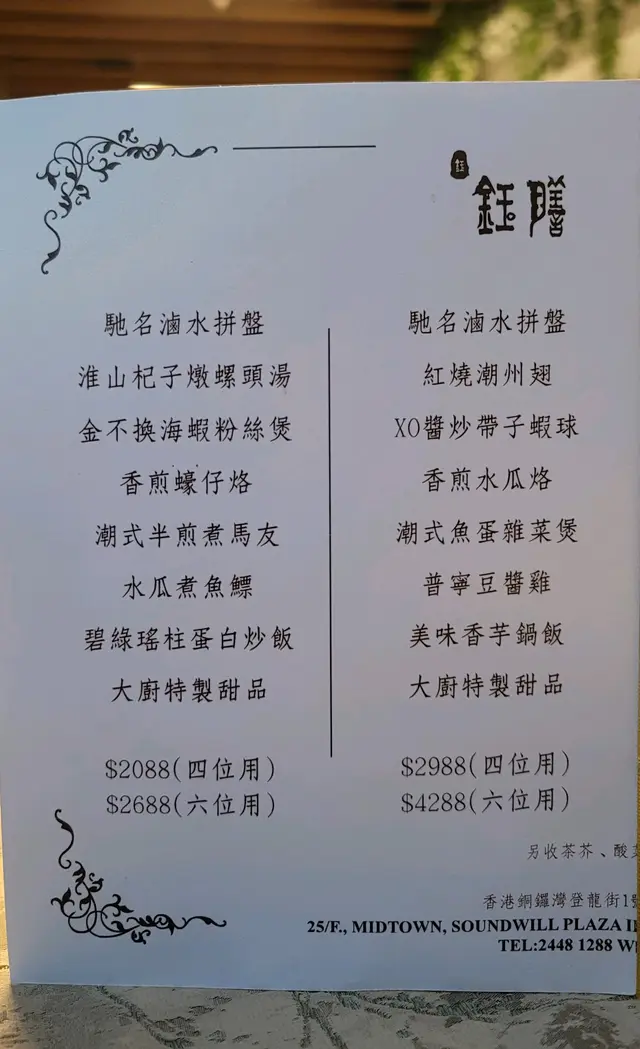 鈺膳
馳名滷水拼盤
淮山杞子燉螺頭湯
金不換海蝦粉絲煲
香煎蠔仔烙
潮式半煎煮馬友
水瓜煮魚鰾
碧綠瑤柱蛋白炒飯
大廚特製甜品
$2088(四位用)
$2688(六位用)
馳名滷水拼盤
紅燒潮州翅
XO醬炒帶子蝦球
香煎水瓜烙
潮式魚蛋雜菜煲
普寧豆醬雞
美味香芋鍋飯
大廚特製甜品
$2988(四位用)
$4288(六位用)
另收茶芥、酸
香港銅鑼灣登龍街1號
25/F., MIDTOWN, SOUNDWILL PLAZA
TEL:2448 1288